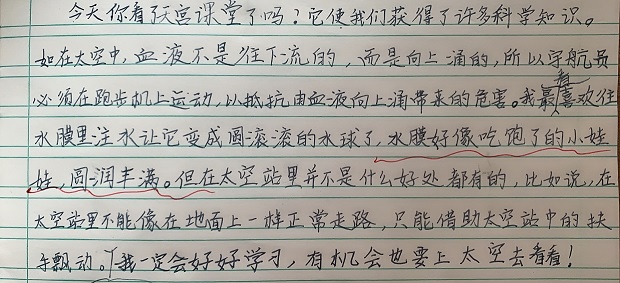 今天你看了天宫课堂了吗?它使我们获得了许多科学知识。
如在太空中,血液不是往下流的,而是向上涌的,所以宇航员
必须在跑步机上运动,以抵抗由血液向上涌带来的危害。我最喜欢看往
水膜里注水让它变成圆滚滚的水球了,水膜好像吃饱了的小娃
娃,圆润丰满。但在太空站里并不是什么好处都有的,比如说,在
太空站里不能像在地面上一样正常走路,只能借助太空站中的扶
手飘动。我一定会好好学习,有机会也要上太空去看看!